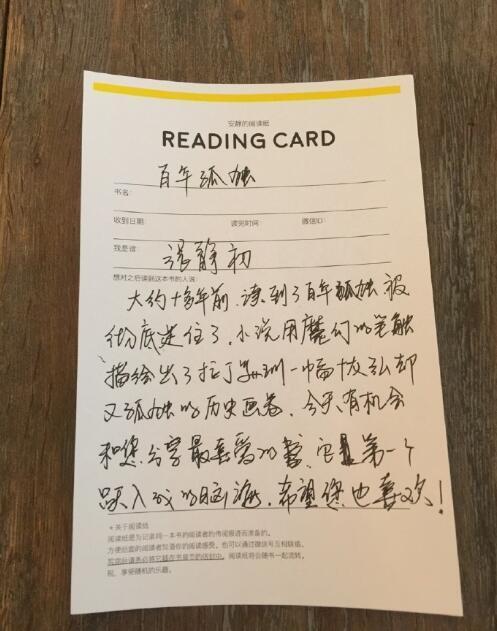 安静的阅读纸
READING CARD
书名: 百年孤独
收到日期: 读完时间: 微信ID:
我是谁: 张静初
想对之后读到这本书的人说:
大约十多年前,读到了百年孤独被
彻底迷住了,小说用魔幻的笔触
描绘出了拉丁美洲一幅恢弘却
又孤独的历史画卷,今天有机会
和您分享最喜爱的书,它是第一个
跃入我的脑海,希望您也喜欢!
*关于阅读纸
阅读纸是为记录同一本书的阅读者的传阅报语而准备的。
方便后面的阅读者知道你的阅读感受,也可以通过微信号互相联络。
阅读纸将会随书一起流转。
祝,享受随机的乐趣。